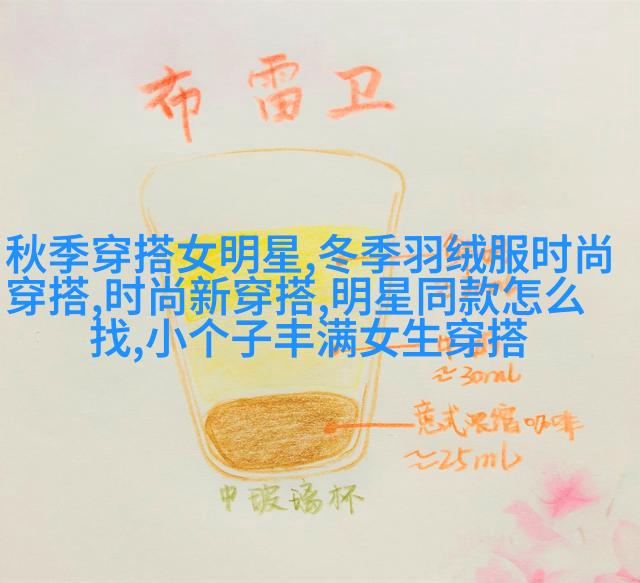 布雷卫
秋季穿搭女明星,冬季羽绒服时尚
穿搭,时尚新穿搭,明星同款怎么
找,小个子丰满女生穿搭
≈30ml
意式浓缩咖啡
≈25ml
中玻璃杯